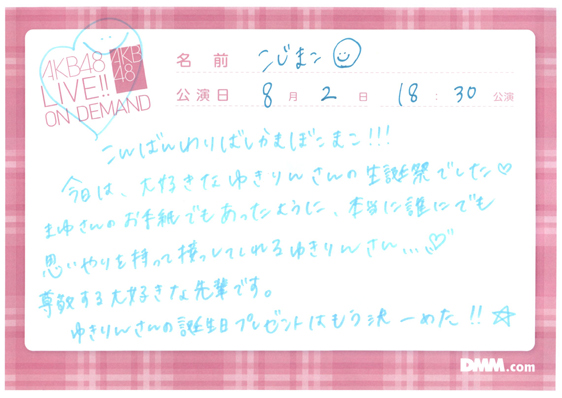 AKB48
LIVE!!
ON DEMAND
AKB
48
名前 こじまこ
公演日 8月2日 18:30公演
こんばんわりばしかまぼこまこ!!!
今日は、大好きなゆきりんさんの生誕祭でした♡
まゆさんのお手紙でもあったように、本当に誰にでも
思いやりを持って接っしてくれるゆきりんさん...♡
尊敬する大好きな先輩です。
ゆきりんさんの誕生日プレゼントはもう決ーめた!!☆
DMM.com